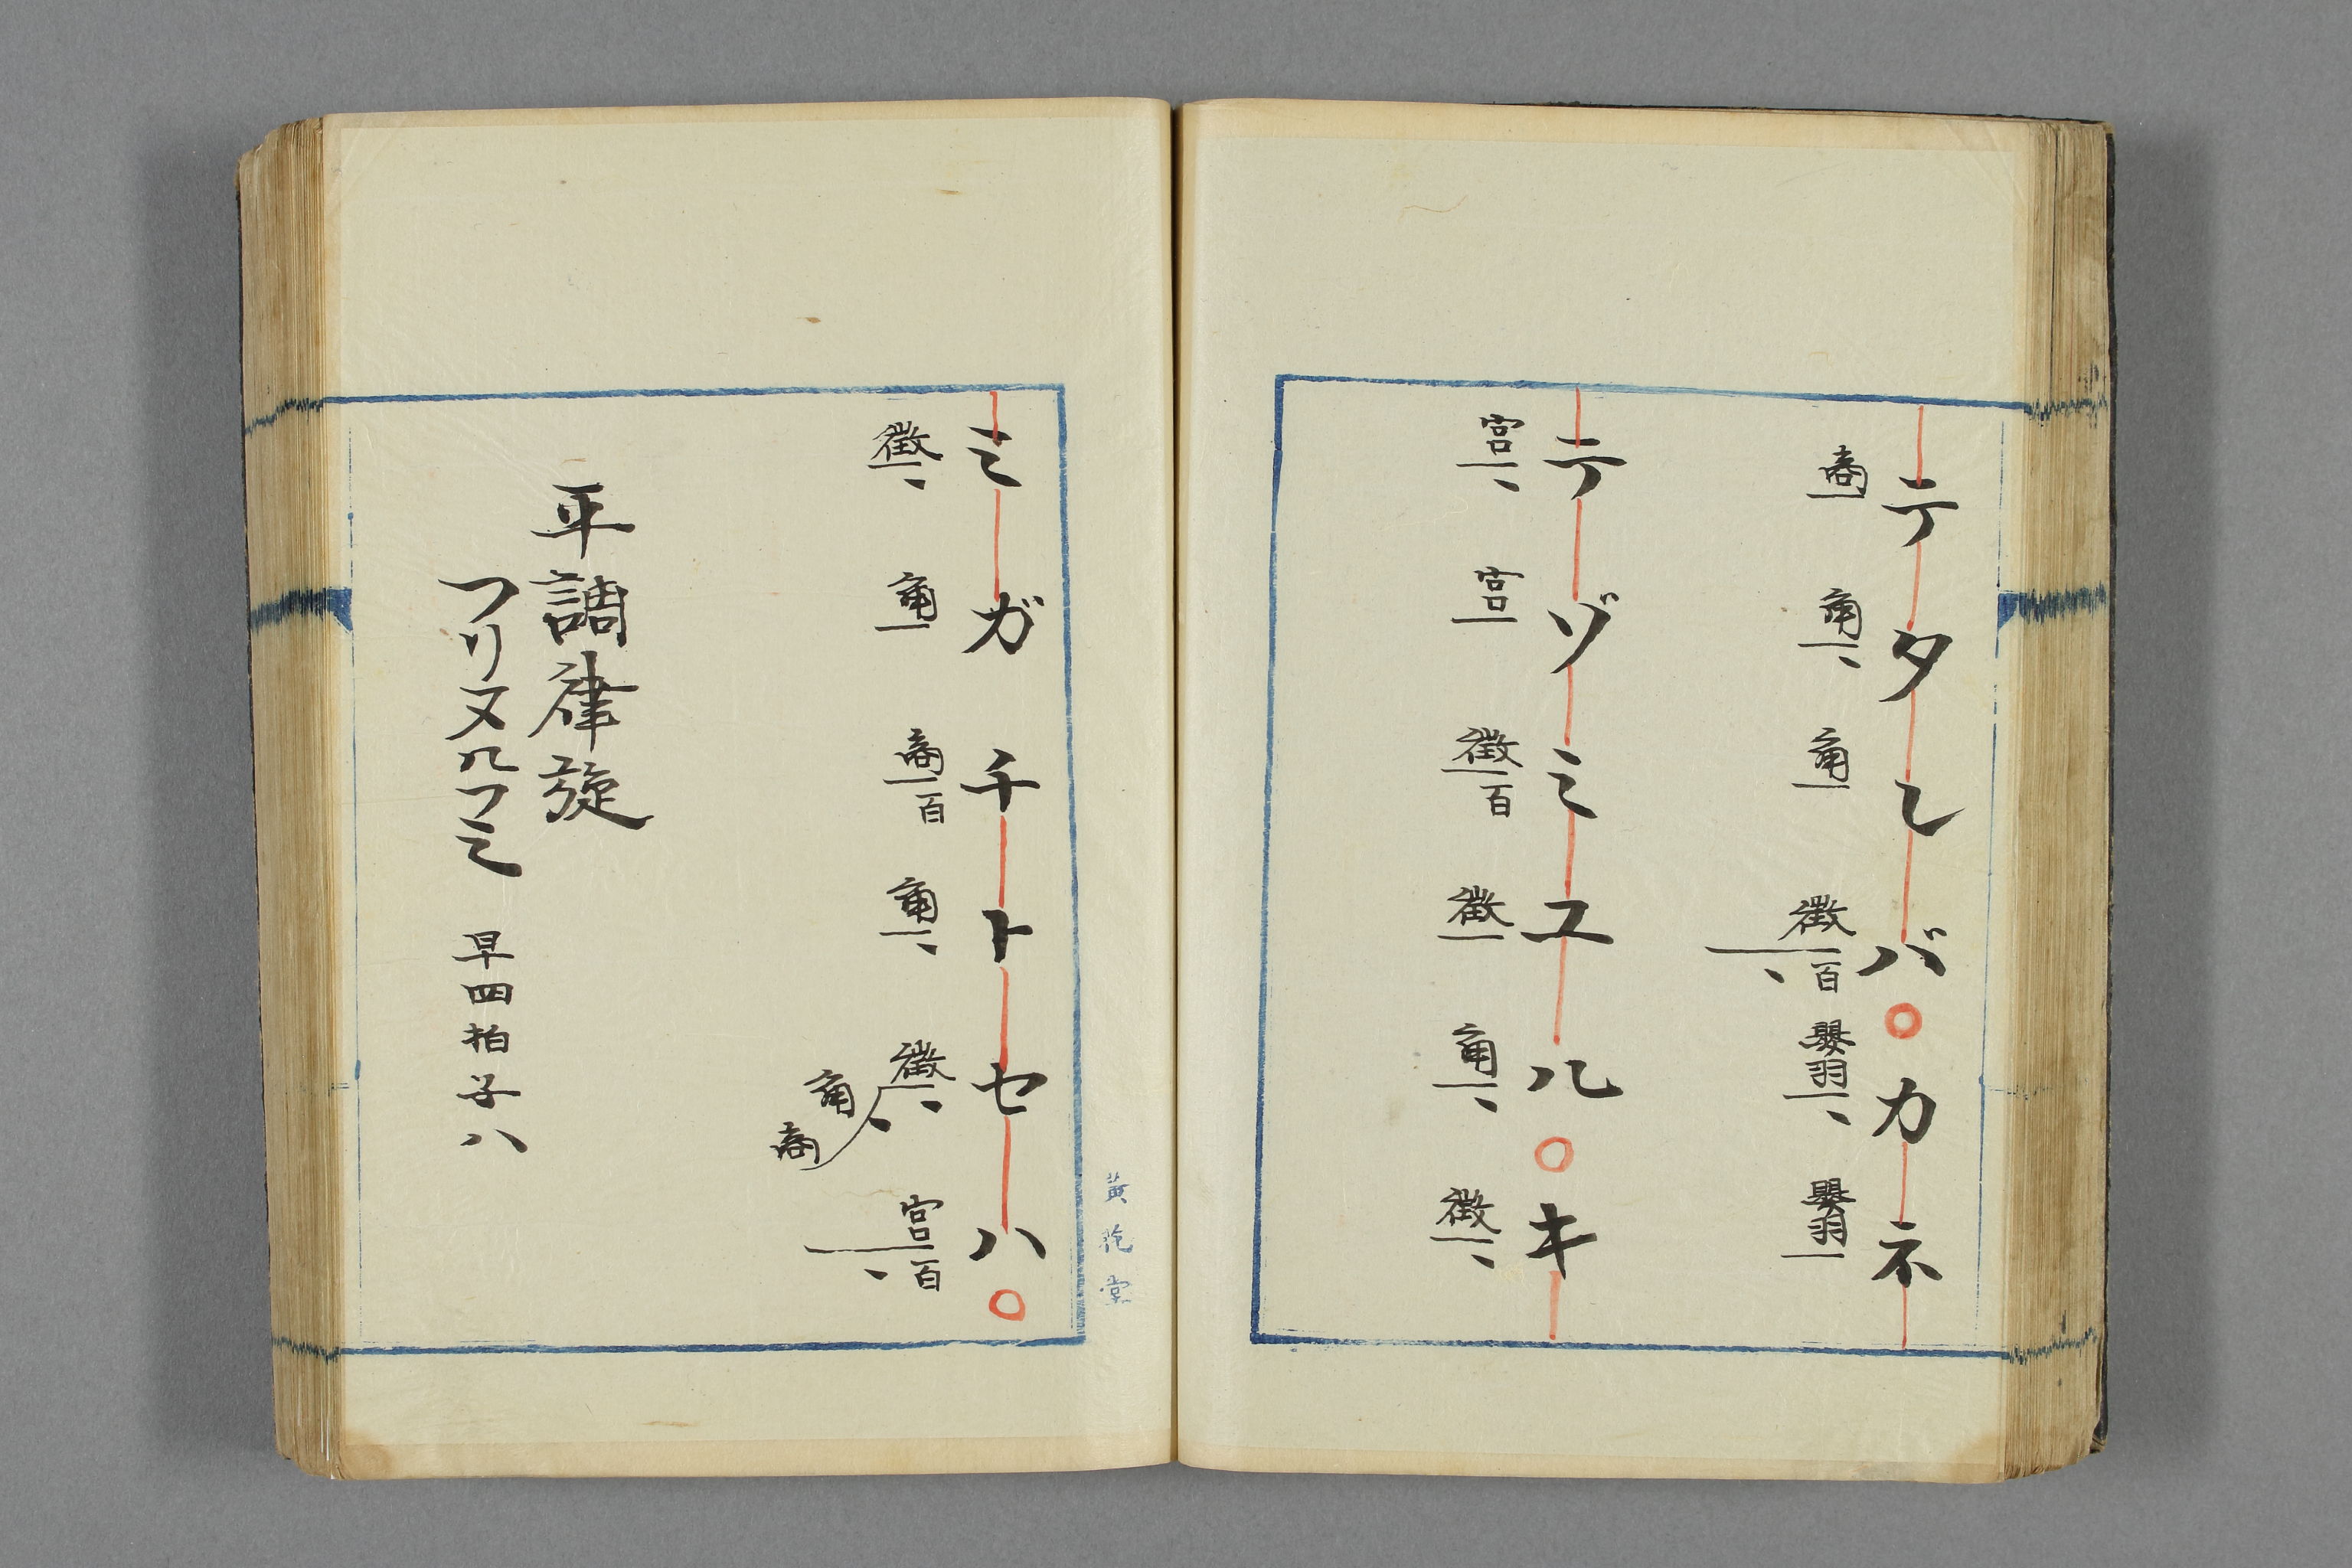 テタレバ○カネ
商 角、 角 徴百、 嬰羽、 嬰羽
テゾミユル○キ
宮、 宮 徴百 徴 角、 徴、
ミガチトセハ○
徴、 角 商百 角、 徴、角、商 宮百、
平調律旋
フリヌルフミ 早四拍子八